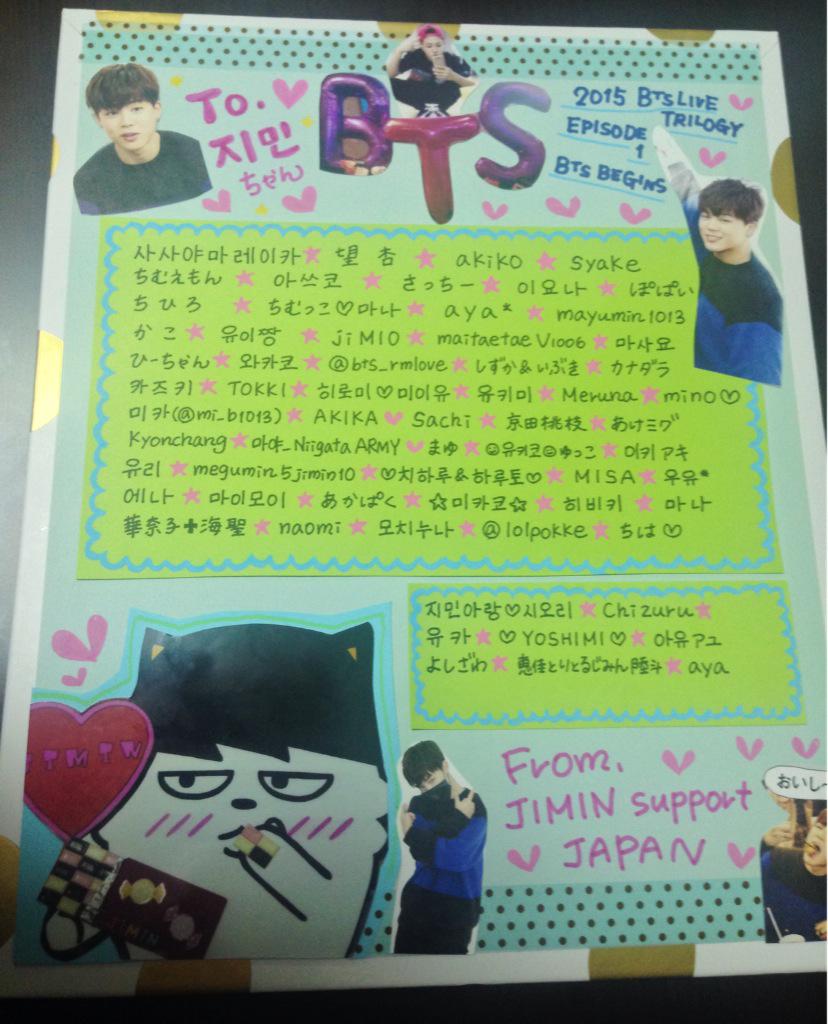 To.
지민
ちゃん
BTS
2015 BTS LIVE
TRILOGY
EPISODE
1
BTS BEGINS
사사야마 레이카★ 望 杏 ★ akiko ★ syake
ちむえもん ★ 아쓰코 ★ さっちー★ 이요나 ★ ぽぽぱい
ちひろ ★ ちむっこ♡마나 ★ aya* ★ mayumin1013
かこ★ 유이짱 ★ jiMIO ★ maitaetaeV1006 ★ 마사요
ひーちゃん★ 와카코★ @bts_rmlove★ しずか&いぶき★ カナダラ
카즈키★ TOKKI★ 히로미♡미이유★ 유키미★ Meruna★mino♡
미카(@mi_b1013)★ AKIKA♥ Sachi★ 京田桃枝★ あけミグ
Kyonchang★마야_Niigata ARMY♥ まゆ★☺유키코☺ゆっこ★ 미키アキ
유리★ megumin5jimin10★♡치하루&하루토♡★ MISA★ 우유*
에나★ 마이모이★ あかぱく★ ☆미카코☆★ 히비키★ 마나
華奈子✚海聖★ naomi★ 모치누나★ @lolpokke★ ちは♡
지민아랑♡시오리★ Chizuru★
유카★ ♡YOSHIMI♡★ 아유アユ
よしざわ★ 恵佳とりとるじみん陸斗★ aya
JIMIN
From.
JIMIN support
JAPAN
おいし〜